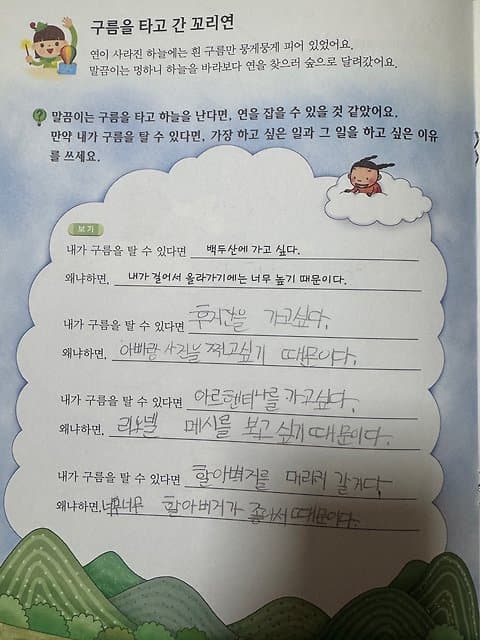 구름을 타고 간 꼬리연
연이 사라진 하늘에는 흰 구름만 뭉게뭉게 피어 있었어요.
말꼼이는 멍하니 하늘을 바라보다 연을 찾으러 숲으로 달려갔어요.
? 말꼼이는 구름을 타고 하늘을 난다면, 연을 잡을 수 있을 것 같았어요.
만약 내가 구름을 탈 수 있다면, 가장 하고 싶은 일과 그 일을 하고 싶은 이유
를 쓰세요.
보기
내가 구름을 탈 수 있다면 백두산에 가고 싶다.
왜냐하면, 내가 걸어서 올라가기에는 너무 높기 때문이다.
내가 구름을 탈 수 있다면 후지산을 가고싶다.
왜냐하면, 아빠랑 사진을 찍고싶기 때문이다.
내가 구름을 탈 수 있다면 아르헨티나를 가고싶다.
왜냐하면, 리오넬 메시를 보고싶기때문이다.
내가 구름을 탈 수 있다면 할아버지를 데리러 갈거다
왜냐하면, 너무 할아버지가 좋아서때문이다.